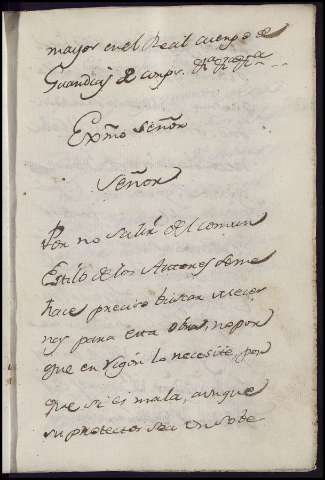 mayor en el Real cuerpo de
Guardias de
Exmo Señor
Señor
Por no salir del comun
Estilo de los Autores seme
hace preciso buscar
para esta obra, no por
que en rigôn la necesite, por
que si es mala, aunque
su protector sea un